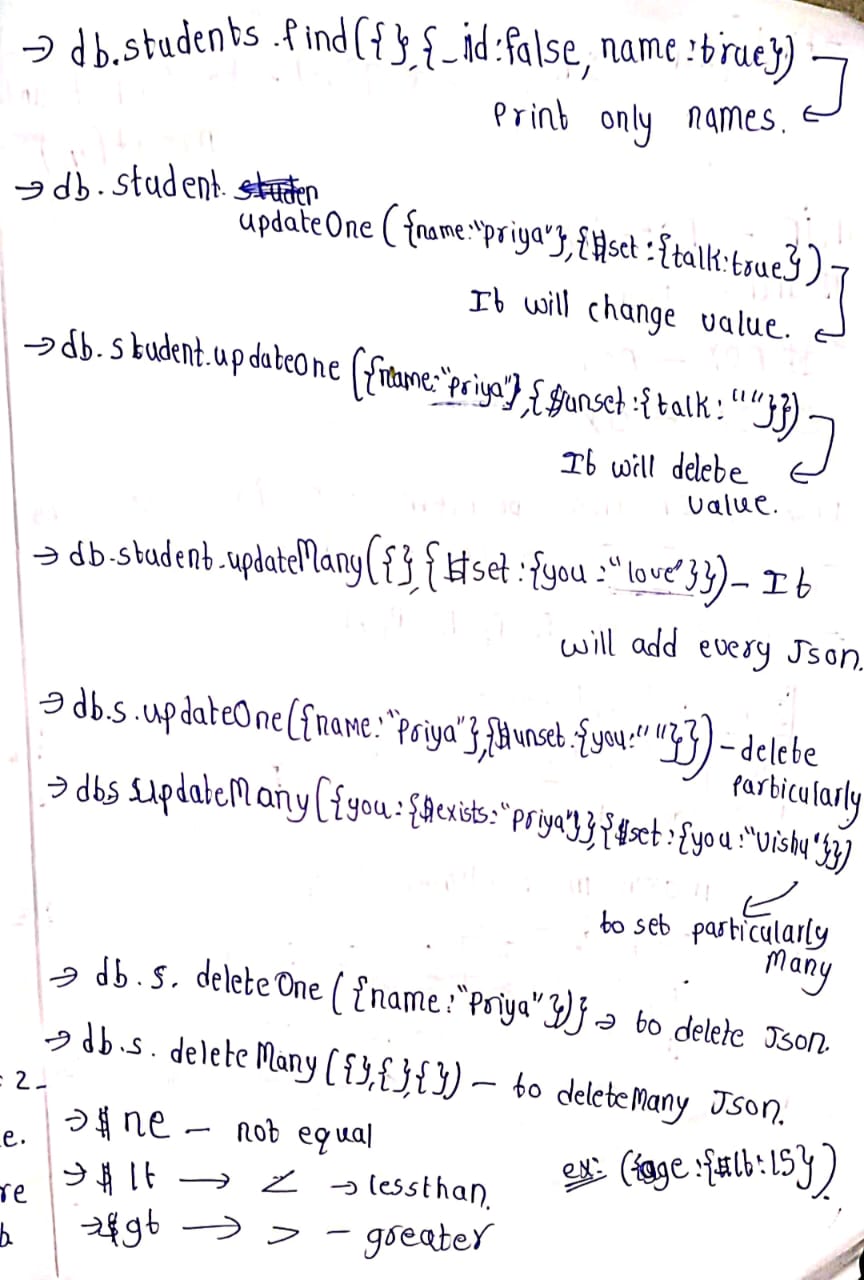 → db.students.find({},{_id:false, name:true})
Print only names.
→ db.student. studen
updateOne ({name:"priya"},{$set:{talk:true})
It will change value.
→ db.student.updateone ({name:"priya"},{$unset:{talk:""}})
It will delete
value.
→ db.student.updateMany({},{$set:{you:"love"}}) - It
will add every Json.
→ db.s.updateOne({name:"Priya"},{$unset:{you:""}}) - delete
Particularly
→ dbs updateMany({you:{$exists:"priya"}},{$set:{you:"Vishu"}})
to set particularly
Many
→ db.s. deleteOne ({name:"Priya"})} → to delete Json.
→ db.s. deleteMany ({},{},{}) - to deleteMany Json.
: 2 -
e. → $ne - not equal
re → $lt → < → lessthan. ex: ({age:{$lt:15})
→ $gt → > - greater